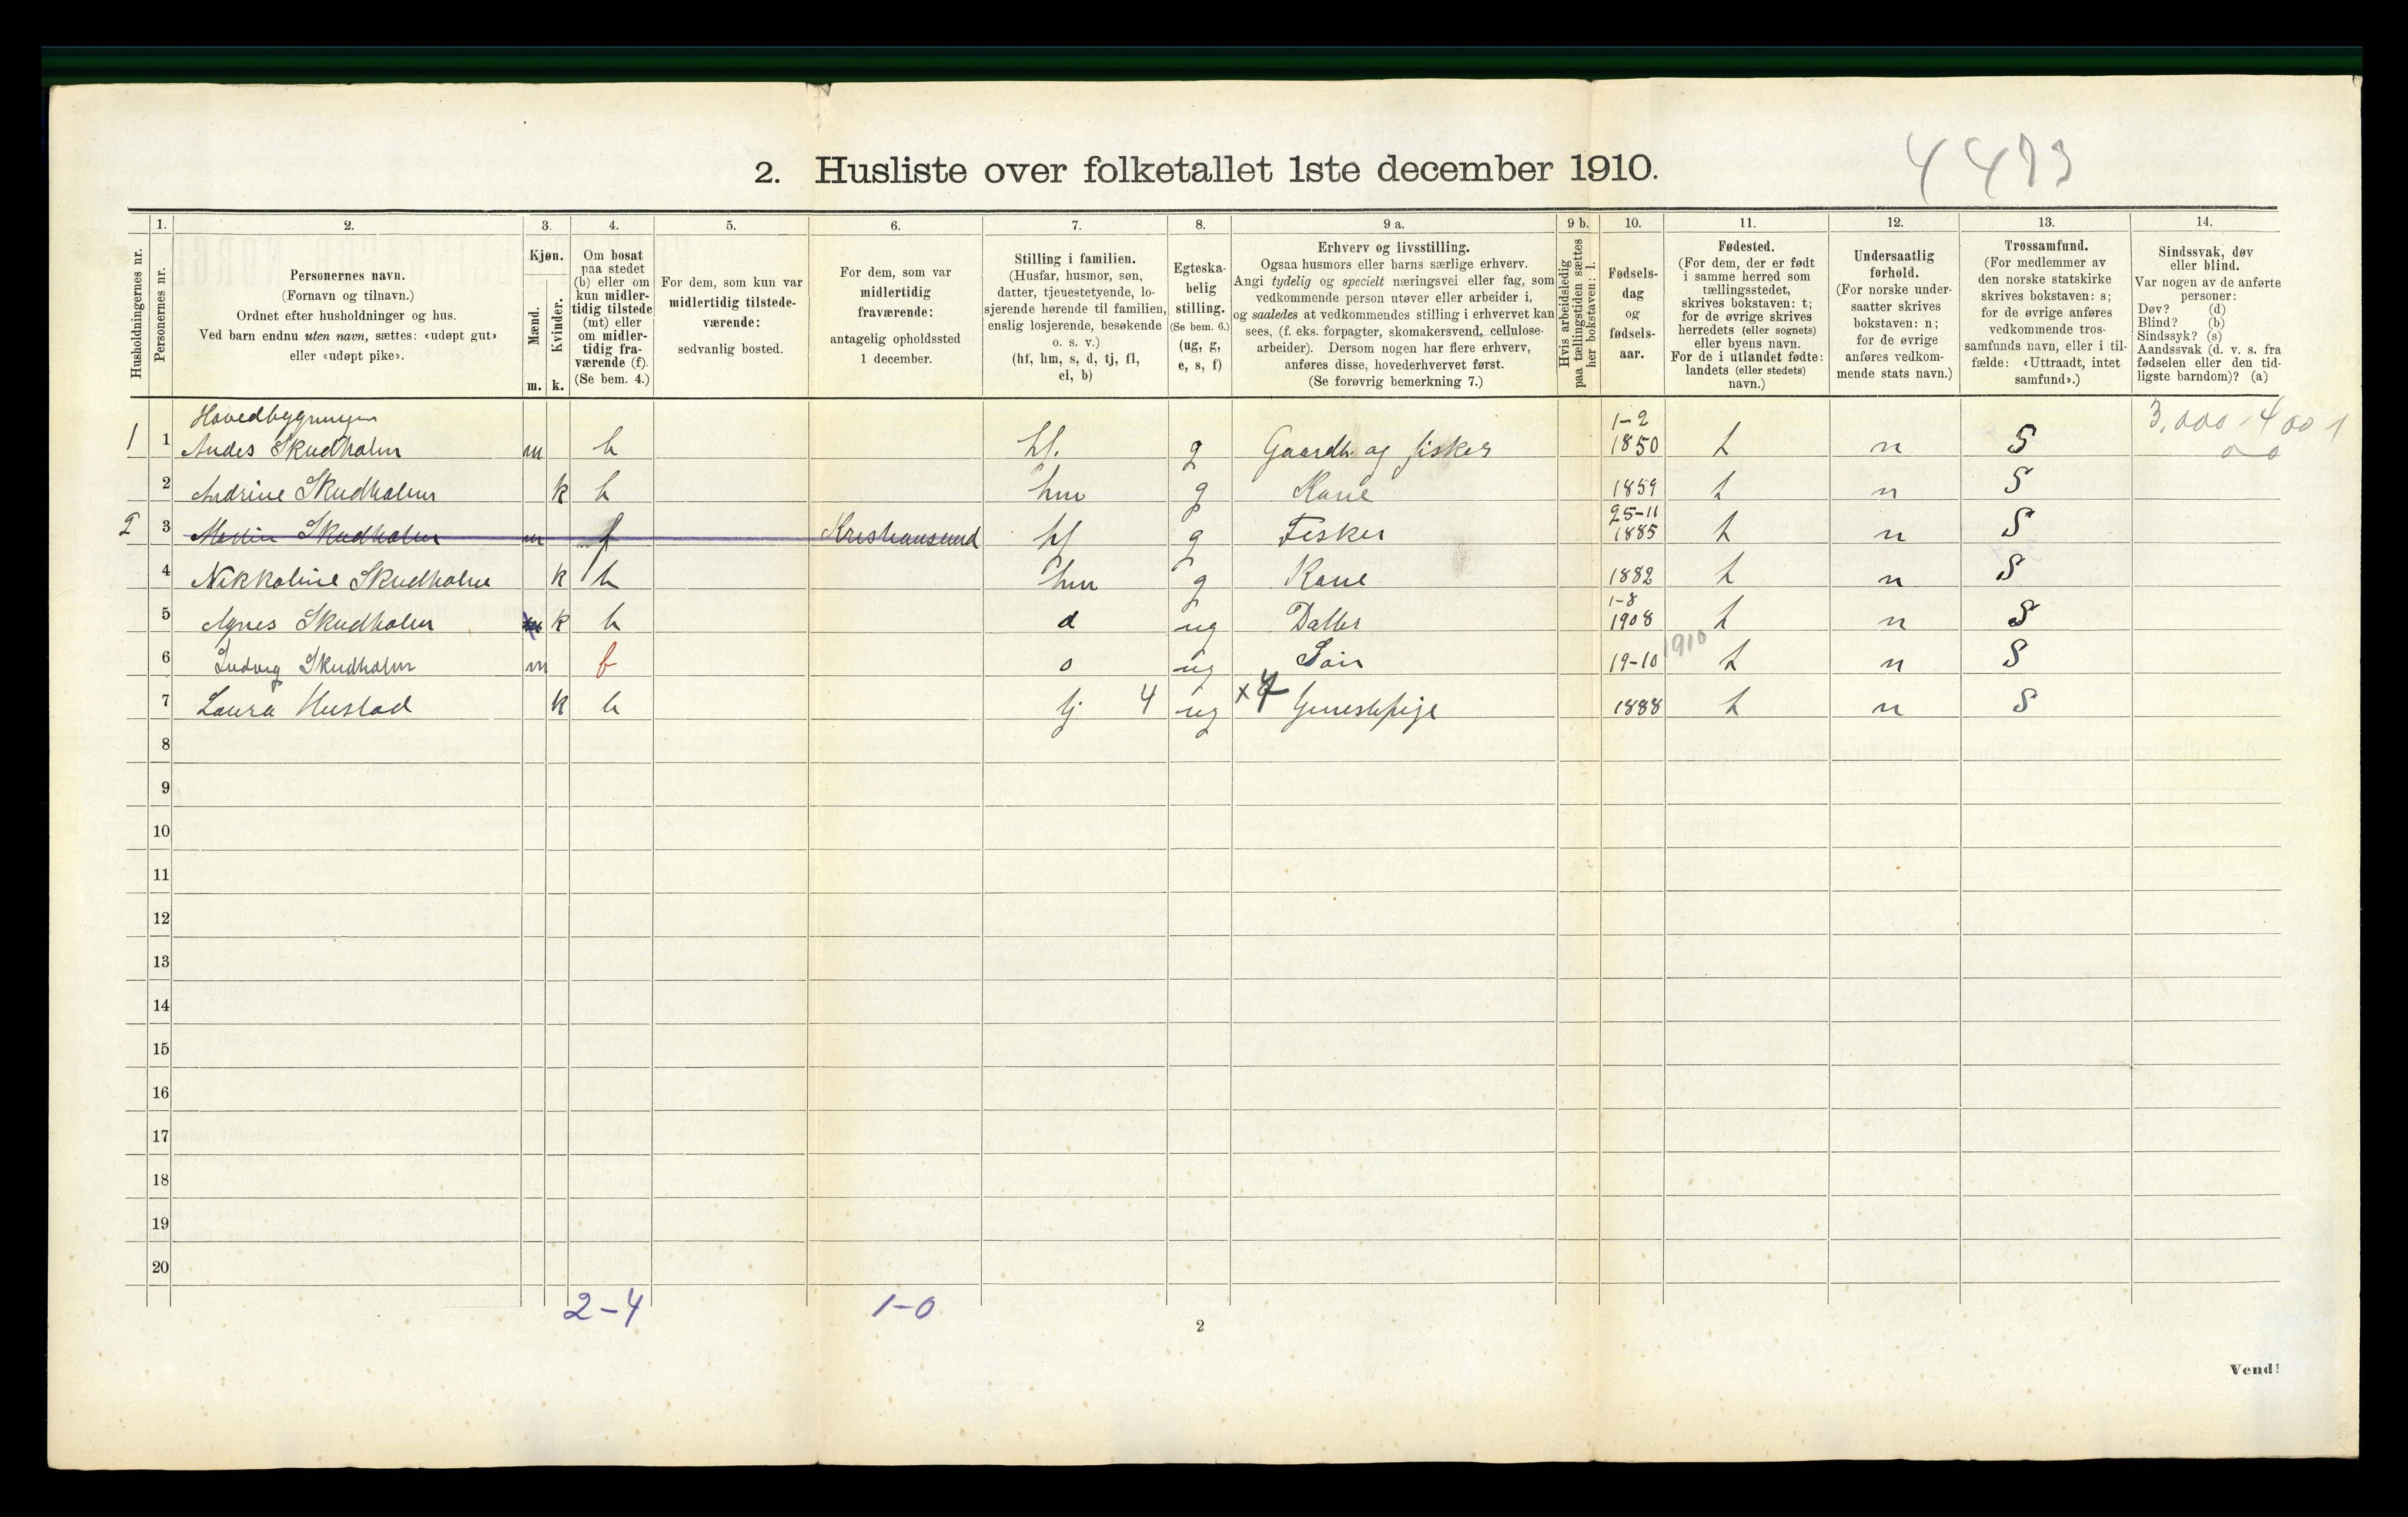 4473
2. Husliste over folketallet 1ste december 1910.
1. 2. 3. 4. 5. 6. 7. 8. 9 a. 9 b. 10. 11. 12. 13. 14.
Husholdningernes nr.
Personernes nr.
Personernes navn.
(Fornavn og tilnavn.)
Ordnet efter husholdninger og hus.
Ved barn endnu uten navn, sættes: «udøpt gut»
eller «udøpt pike».
Kjøn.
Mænd.
Kvinder.
m. k.
Om bosat
paa stedet
(b) eller om
kun midler-
tidig tilstede
(mt) eller
om midler-
tidig fra-
værende (f).
(Se bem. 4.)
For dem, som kun var
midlertidig tilstede-
værende:
sedvanlig bosted.
For dem, som var
midlertidig
fraværende:
antagelig opholdssted
1 december.
Stilling i familien.
(Husfar, husmor, søn,
datter, tjenestetyende, lo-
sjerende hørende til familien,
enslig losjerende, besøkende
o. s. v.)
(hf, hm, s, d, tj, fl,
el, b)
Egteska-
belig
stilling.
(Se bem. 6.)
(ug, g,
e, s, f)
Erhverv og livsstilling.
Ogsaa husmors eller barns særlige erhverv.
Angi tydelig og specielt næringsvei eller fag, som
vedkommende person utøver eller arbeider i,
og saaledes at vedkommendes stilling i erhvervet kan
sees, (f. eks. forpagter, skomakersvend, cellulose-
arbeider). Dersom nogen har flere erhverv,
anføres disse, hovederhvervet først.
(Se forøvrig bemerkning 7.)
Hvis arbeidsledig
paa tællingstiden sættes
her bokstaven: l.
Fødsels-
dag
og
fødsels-
aar.
Fødested.
(For dem, der er født
i samme herred som
tællingsstedet,
skrives bokstaven: t;
for de øvrige skrives
herredets (eller sognets)
eller byens navn.
For de i utlandet fødte:
landets (eller stedets)
navn.)
Undersaatlig
forhold.
(For norske under-
saatter skrives
bokstaven: n;
for de øvrige
anføres vedkom-
mende stats navn.)
Trossamfund.
(For medlemmer av
den norske statskirke
skrives bokstaven: s;
for de øvrige anføres
vedkommende tros-
samfunds navn, eller i til-
fælde: «Uttraadt, intet
samfund».)
Sindssvak, døv
eller blind.
Var nogen av de anførte
personer:
Døv? (d)
Blind? (b)
Sindssyk? (s)
Aandssvak (d. v. s. fra
fødselen eller den tid-
ligste barndom)? (a)
Hovedbygningen 1-2 3,000-400 1
1 1 Andes Skudholm m b hf. g Gaardb. og fisker 1850 t n S
2 Andrine Skudholm k b hm g Kone 1859 t n S
25-11
2 3 Martin Skudholm m f Kristiansund hf g Fisker 1885 t n S
4 Nikkoline Skudholm k b hm g Kone 1882 t n S
1-8
5 Agnes Skudholm k b d ug Datter 1908 t n S
6 Ludvig Skudholm m b s ug Søn 19-10 1910 t n S
7 Laura Hustad k b tj 4 ug x4 Tjenestepige 1888 t n S
8
9
10
11
12
13
14
15
16
17
18
19
20
2-4 1-0
2
Vend!